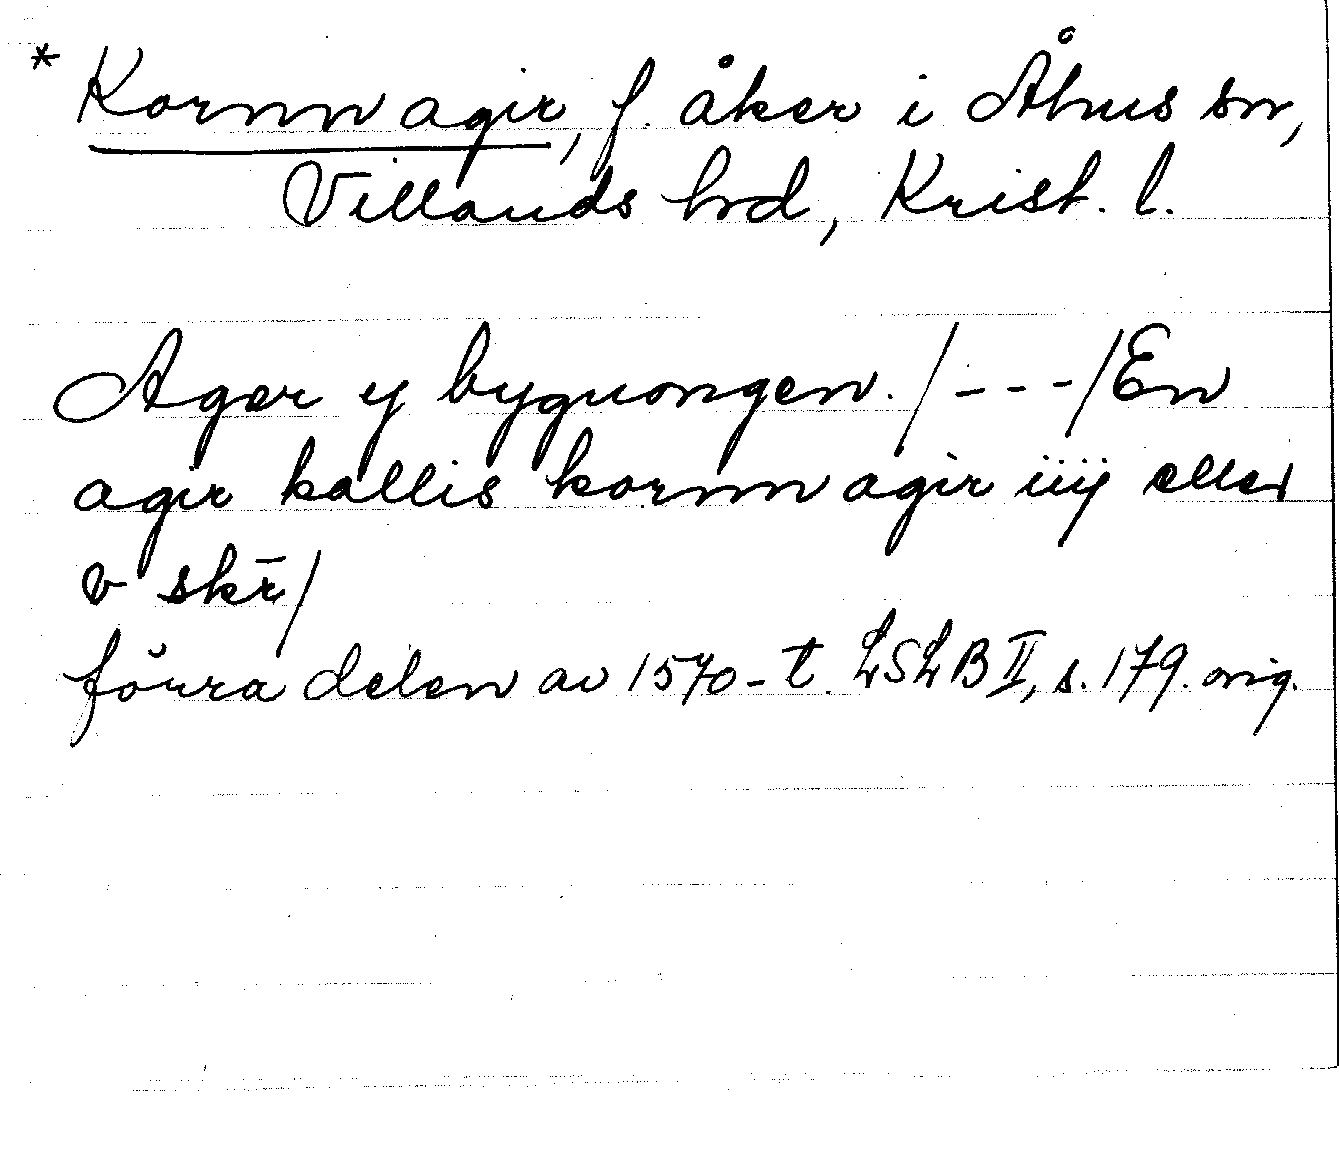 * Kornn agir, f. åker i Åhus sn,
Villands hrd, Krist. l.
Ager y byguongen. /---/ En
agir kallis kornn agir iiij eller
v skr̄/
förra delen av 1570-t. LSLB II, s. 179. orig.